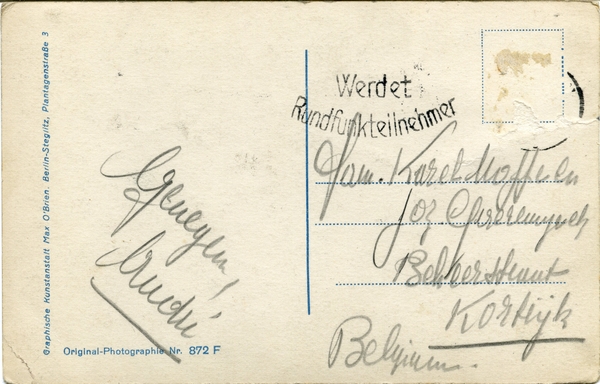 Graphische Kunstanstalt Max O'Brien. Berlin-Steglitz, Plantagenstraße 3
Werdet
Rundfunkteilnehmer
Genegen,
André
Fam. Karel
Joz
Kortrijk
Belgium.
Original-Photographie Nr. 872 F